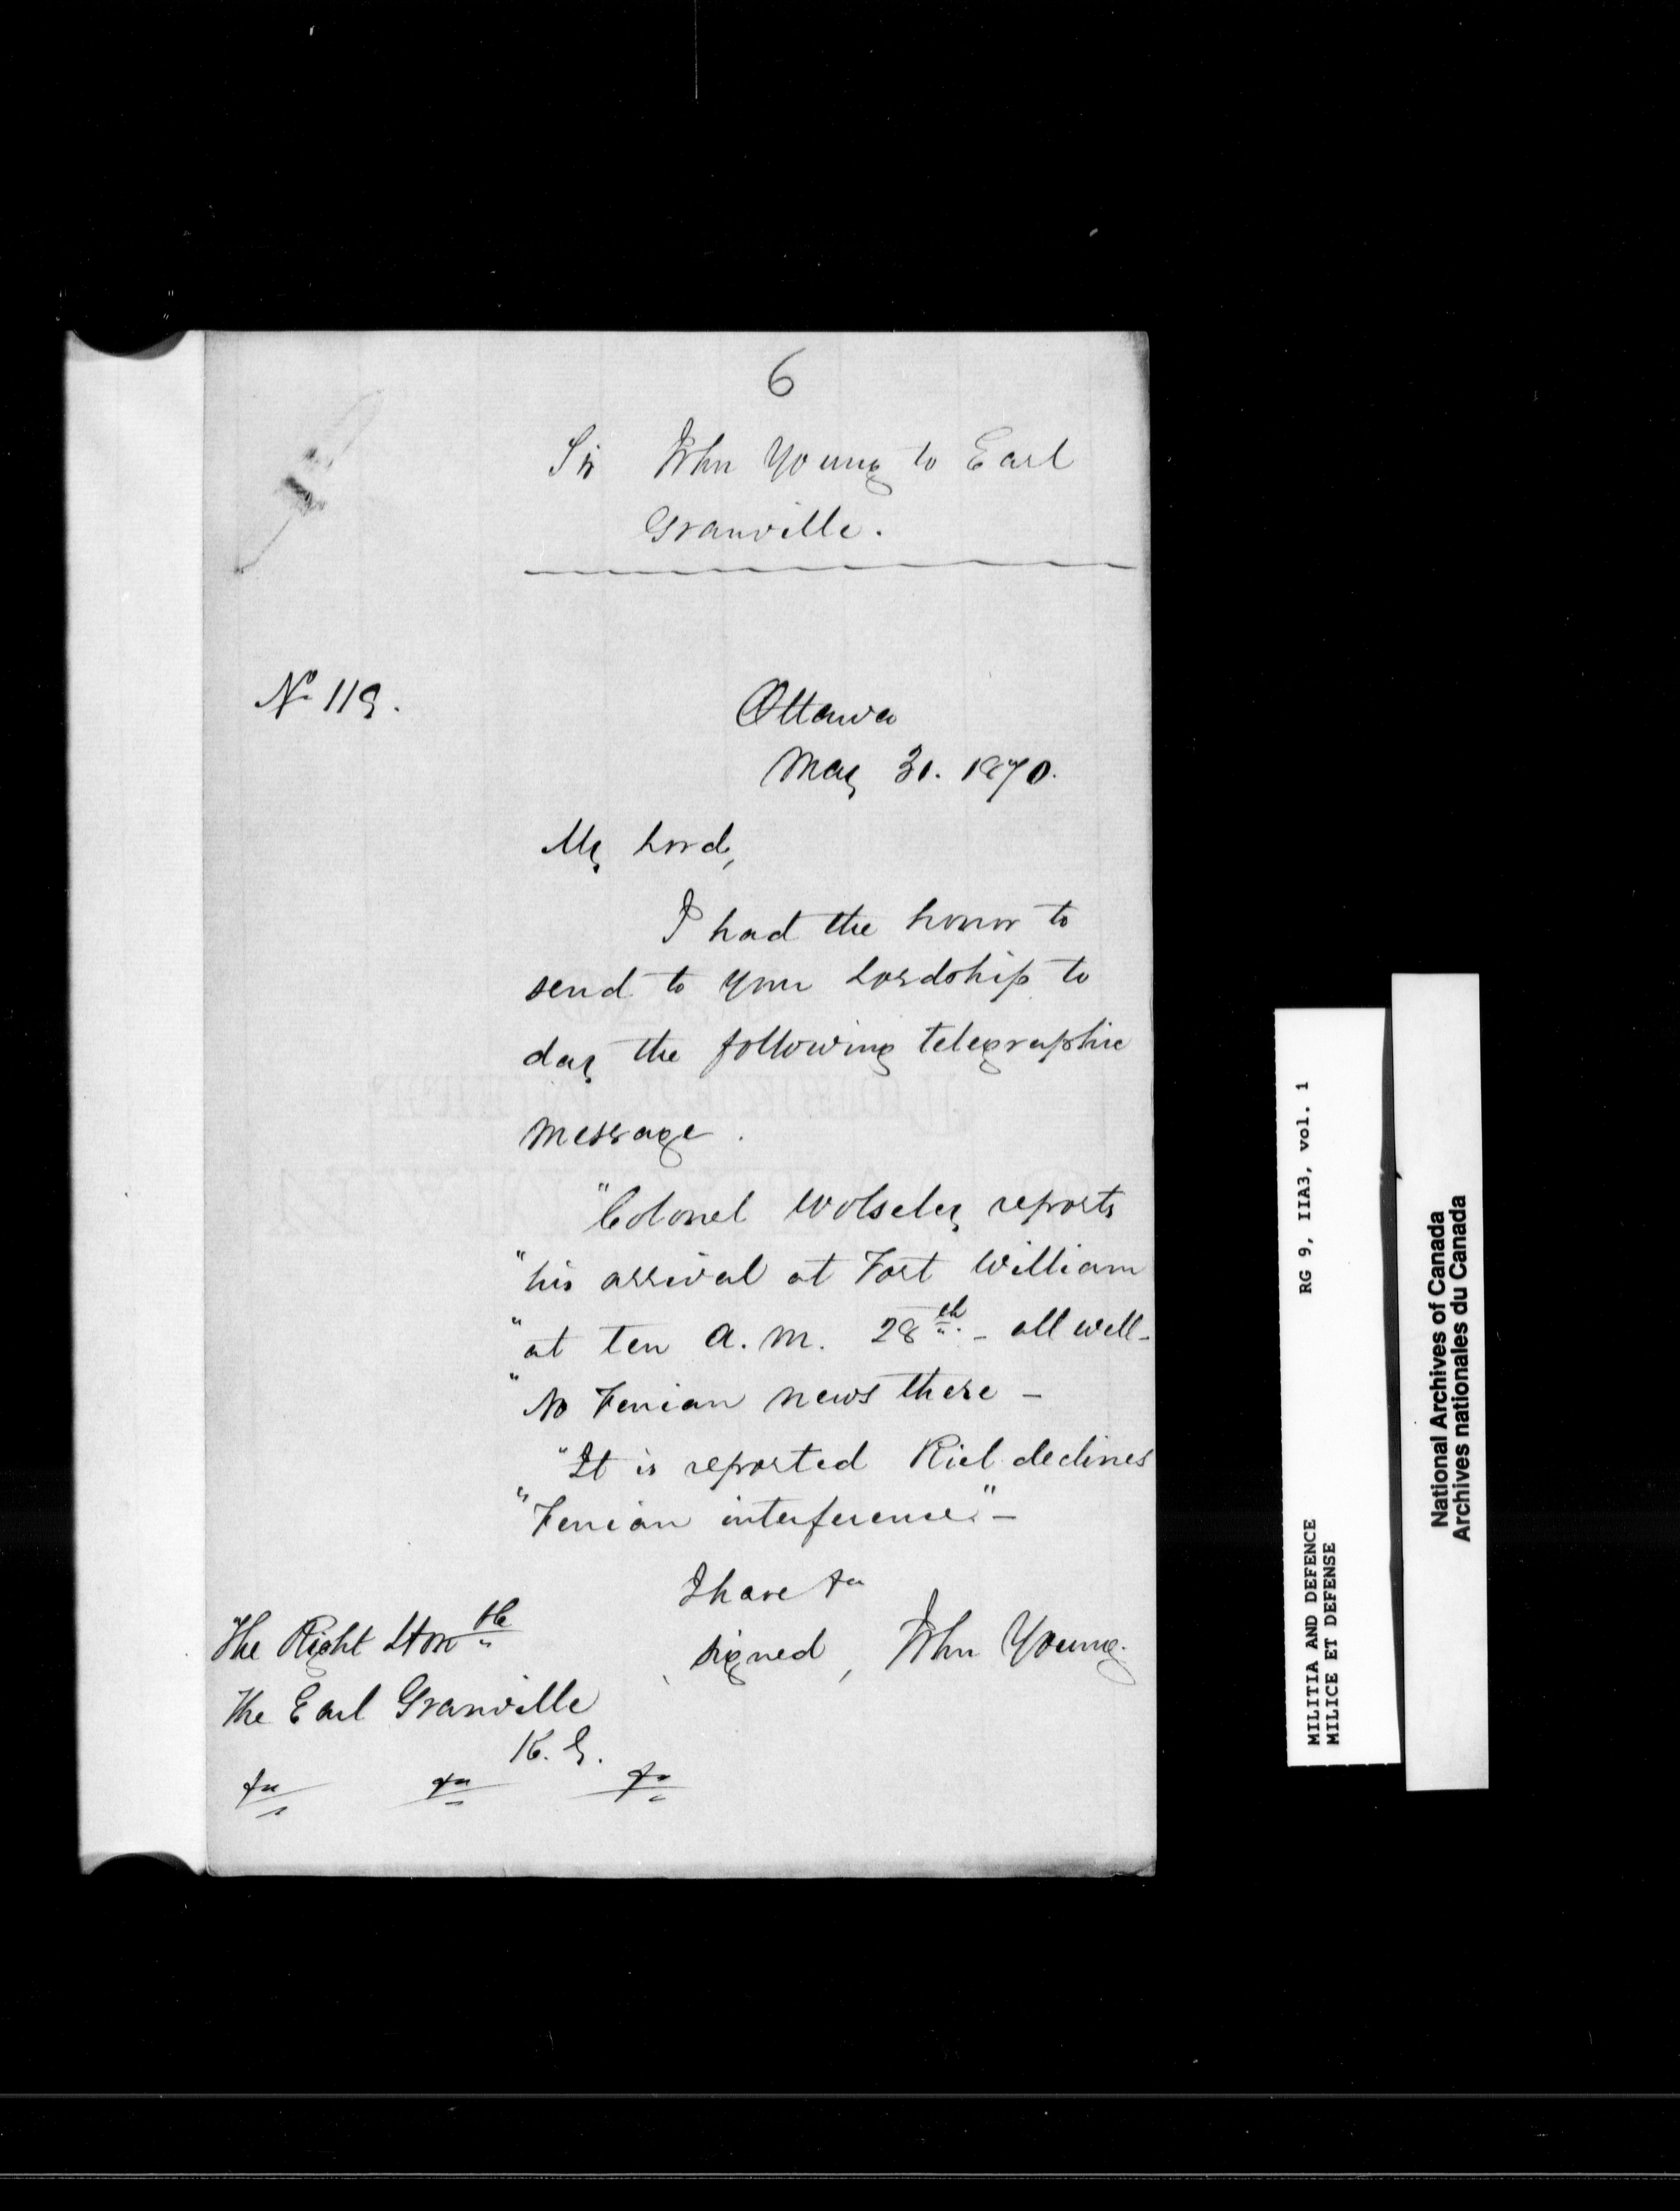 6
Sir John Young to Earl
Granville.
No 119.
Ottawa
May 31. 1870.
My Lord,
I had the honor to
send to your Lordship to
day the following telegraphic
message.
"Colonel Wolseley reports
"his arrival at Fort William
"at ten a.m. 28th. - all well -
"No Fenian news there -
"It is reported Riel declines
"Fenian interference." -
I have &c
signed, John Young.
The Right Honble
The Earl Granville
K. G.
&c &c &c
MILITIA AND DEFENCE RG 9, IIA3, vol. 1
MILICE ET DEFENSE
National Archives of Canada
Archives nationales du Canada